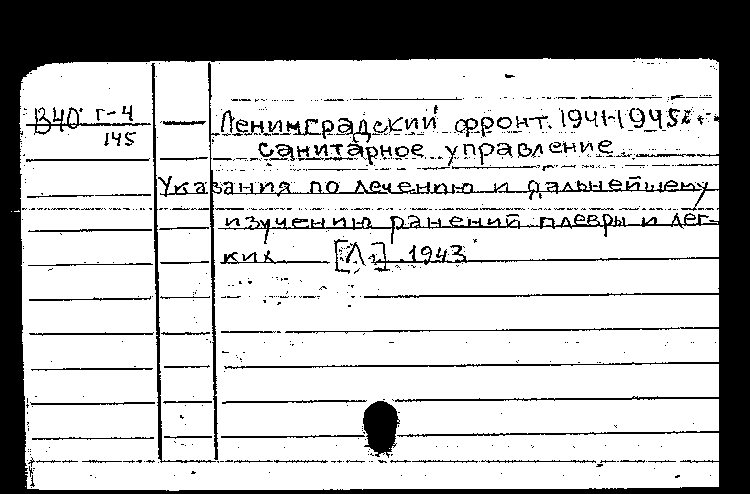 В40 г-4 — Ленинградский фронт. 1941-1945г.
145 Санитарное управление.
Указания по лечению и дальнейшему
изучению ранений плевры и лег-
ких [Л.] 1943